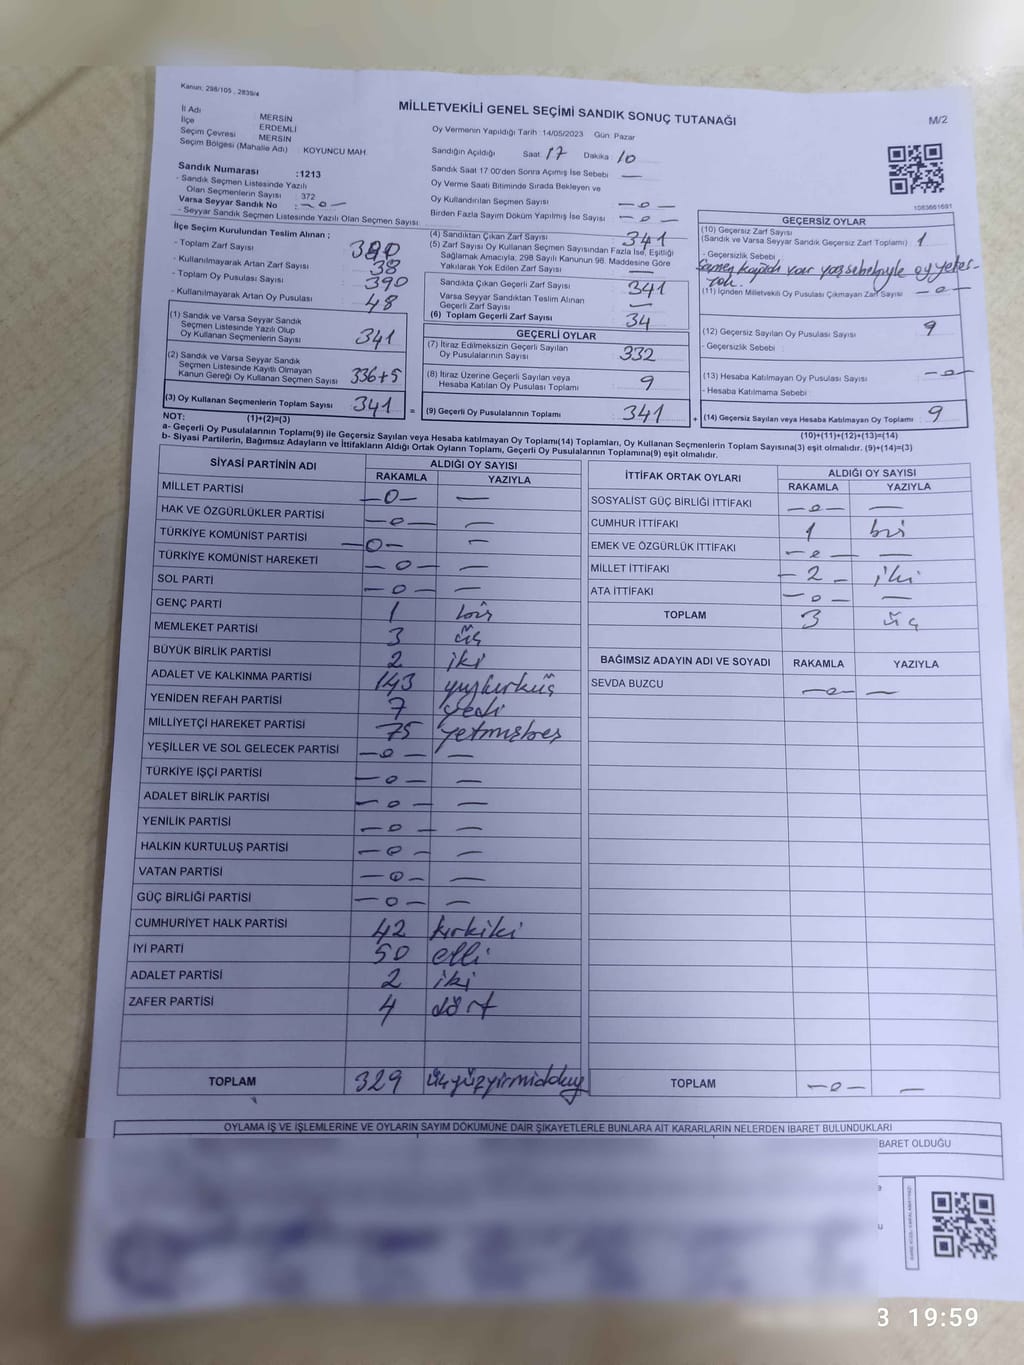 Kanun, 298/105 , 2839/4
MİLLETVEKİLİ GENEL SEÇİMİ SANDIK SONUÇ TUTANAĞI
M/2
İl Adı : MERSİN
İlçe : ERDEMLİ
Seçim Çevresi : MERSİN
Seçim Bölgesi (Mahalle Adı) : KOYUNCU MAH.
Oy Vermenin Yapıldığı Tarih :14/05/2023 Gün: Pazar
Sandığın Açıldığı Saat: 17 Dakika: 10
Sandık Saat 17 00'den Sonra Açımış İse Sebebi —
Oy Verme Saati Bitiminde Sırada Bekleyen ve
Oy Kullandırılan Seçmen Sayısı — 0 —
Birden Fazla Sayım Döküm Yapılmış İse Sayısı — 0 —
Sandık Numarası :1213
- Sandık Seçmen Listesinde Yazılı
Olan Seçmenlerin Sayısı : 372
Varsa Seyyar Sandık No : — 0 —
- Seyyar Sandık Seçmen Listesinde Yazılı Olan Seçmen Sayısı:
1083661691
İlçe Seçim Kurulundan Teslim Alınan ;
- Toplam Zarf Sayısı
- Kullanılmayarak Artan Zarf Sayısı 38
- Toplam Oy Pusulası Sayısı 390
- Kullanılmayarak Artan Oy Pusulası 48
(1) Sandık ve Varsa Seyyar Sandık
Seçmen Listesinde Yazılı Olup
Oy Kullanan Seçmenlerin Sayısı 341
(2) Sandık ve Varsa Seyyar Sandık
Seçmen Listesinde Kayıtlı Olmayan
Kanun Gereği Oy Kullanan Seçmen Sayısı 336+5
(3) Oy Kullanan Seçmenlerin Toplam Sayısı 341 =
(4) Sandıktan Çıkan Zarf Sayısı 341
(5) Zarf Sayısı Oy Kullanan Seçmen Sayısından Fazla İse, Eşitliği
Sağlamak Amacıyla, 298 Sayılı Kanunun 98. Maddesine Göre
Yakılarak Yok Edilen Zarf Sayısı —
Sandıkta Çıkan Geçerli Zarf Sayısı 341
Varsa Seyyar Sandıktan Teslim Alınan
Geçerli Zarf Sayısı —
(6) Toplam Geçerli Zarf Sayısı 34
GEÇERLİ OYLAR
(7) İtiraz Edilmeksizin Geçerli Sayılan
Oy Pusulalarının Sayısı 332
(8) İtiraz Üzerine Geçerli Sayılan veya
Hesaba Katılan Oy Pusulası Toplamı 9
(9) Geçerli Oy Pusulalarının Toplamı 341 +
GEÇERSİZ OYLAR
(10) Geçersiz Zarf Sayısı
(Sandık ve Varsa Seyyar Sandık Geçersiz Zarf Toplamı) 1
- Geçersizlik Sebebi
(11) İçinden Milletvekili Oy Pusulası Çıkmayan Zarf Sayısı — 0 —
(12) Geçersiz Sayılan Oy Pusulası Sayısı 9
- Geçersizlik Sebebi :
(13) Hesaba Katılmayan Oy Pusulası Sayısı — 0 —
- Hesaba Katılmama Sebebi
(14) Geçersiz Sayılan veya Hesaba Katılmayan Oy Toplamı 9
NOT: (1)+(2)=(3)
(10)+(11)+(12)+(13)=(14)
a- Geçerli Oy Pusulalarının Toplamı(9) ile Geçersiz Sayılan veya Hesaba katılmayan Oy Toplamı(14) Toplamları, Oy Kullanan Seçmenlerin Toplam Sayısına(3) eşit olmalıdır. (9)+(14)=(3)
b- Siyasi Partilerin, Bağımsız Adayların ve İttifakların Aldığı Oyların Toplamı, Geçerli Oy Pusulalarının Toplamına(9) eşit olmalıdır.
SİYASİ PARTİNİN ADI ALDIĞI OY SAYISI
RAKAMLA YAZIYLA
MİLLET PARTİSİ — 0 — —
HAK VE ÖZGÜRLÜKLER PARTİSİ — 0 — —
TÜRKİYE KOMÜNİST PARTİSİ — 0 — —
TÜRKİYE KOMÜNİST HAREKETİ — 0 — —
SOL PARTİ — 0 — —
GENÇ PARTİ 1 bir
MEMLEKET PARTİSİ 3 üç
BÜYÜK BİRLİK PARTİSİ 2 iki
ADALET VE KALKINMA PARTİSİ 143 yüzkırküç
YENİDEN REFAH PARTİSİ 7 yedi
MİLLİYETÇİ HAREKET PARTİSİ 75 yetmişbeş
YEŞİLLER VE SOL GELECEK PARTİSİ — 0 — —
TÜRKİYE İŞÇİ PARTİSİ — 0 — —
ADALET BİRLİK PARTİSİ — 0 — —
YENİLİK PARTİSİ — 0 — —
HALKIN KURTULUŞ PARTİSİ — 0 — —
VATAN PARTİSİ — 0 — —
GÜÇ BİRLİĞİ PARTİSİ — 0 — —
CUMHURİYET HALK PARTİSİ 42 kırkiki
İYİ PARTİ 50 elli
ADALET PARTİSİ 2 iki
ZAFER PARTİSİ 4 dört
TOPLAM 329 üçyüzyirmidokuz
İTTİFAK ORTAK OYLARI ALDIĞI OY SAYISI
RAKAMLA YAZIYLA
SOSYALİST GÜÇ BİRLİĞİ İTTİFAKI — 0 — —
CUMHUR İTTİFAKI 1 bir
EMEK VE ÖZGÜRLÜK İTTİFAKI — 0 — —
MİLLET İTTİFAKI — 2 — iki
ATA İTTİFAKI — 0 — —
TOPLAM 3 üç
BAĞIMSIZ ADAYIN ADI VE SOYADI RAKAMLA YAZIYLA
SEVDA BUZCU — 0 — —
TOPLAM — 0 — —
OYLAMA İŞ VE İŞLEMLERİNE VE OYLARIN SAYIM DÖKÜMÜNE DAİR ŞİKAYETLERLE BUNLARA AİT KARARLARIN NELERDEN İBARET BULUNDUKLARI
BARET OLDUĞU
3 19:59